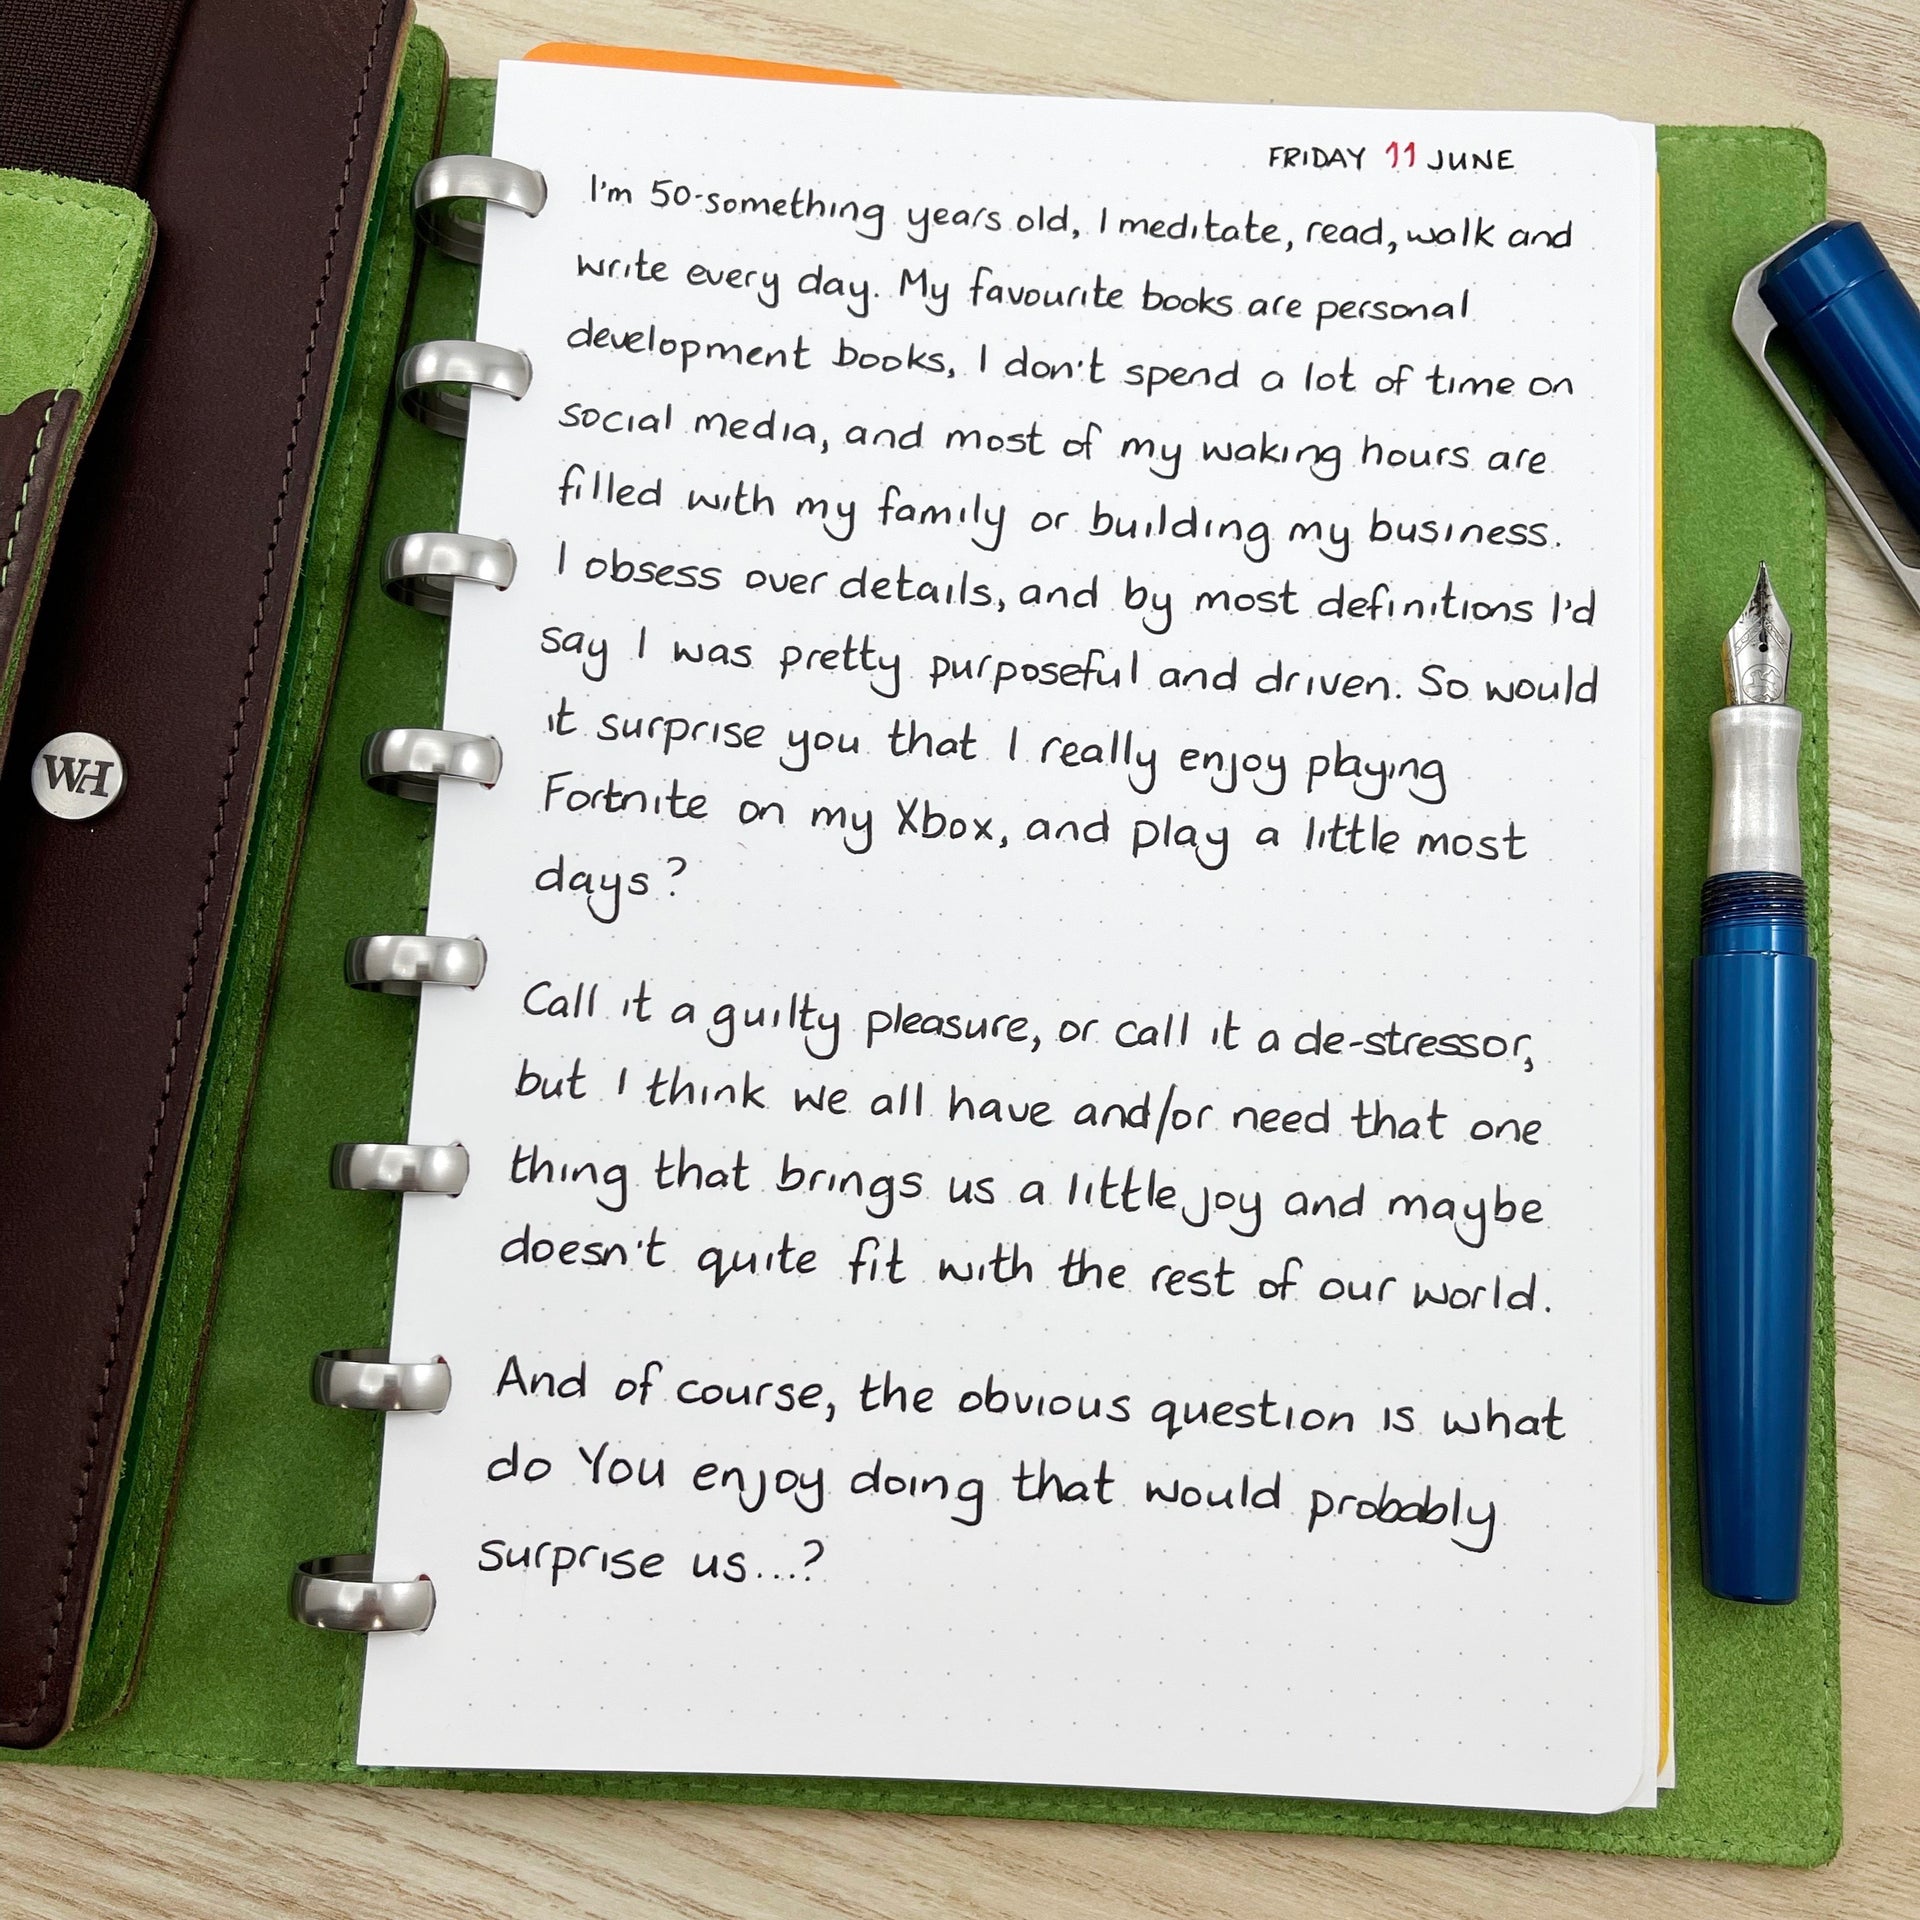 FRIDAY 11 JUNE
I'm 50-something years old, I meditate, read, walk and
write every day. My favourite books are personal
development books, I don't spend a lot of time on
social media, and most of my waking hours are
filled with my family or building my business.
I obsess over details, and by most definitions I'd
say I was pretty purposeful and driven. So would
it surprise you that I really enjoy playing
Fortnite on my Xbox, and play a little most
days?
Call it a guilty pleasure, or call it a de-stressor,
but I think we all have and/or need that one
thing that brings us a little joy and maybe
doesn't quite fit with the rest of our world.
And of course, the obvious question is what
do You enjoy doing that would probably
surprise us...?
WH